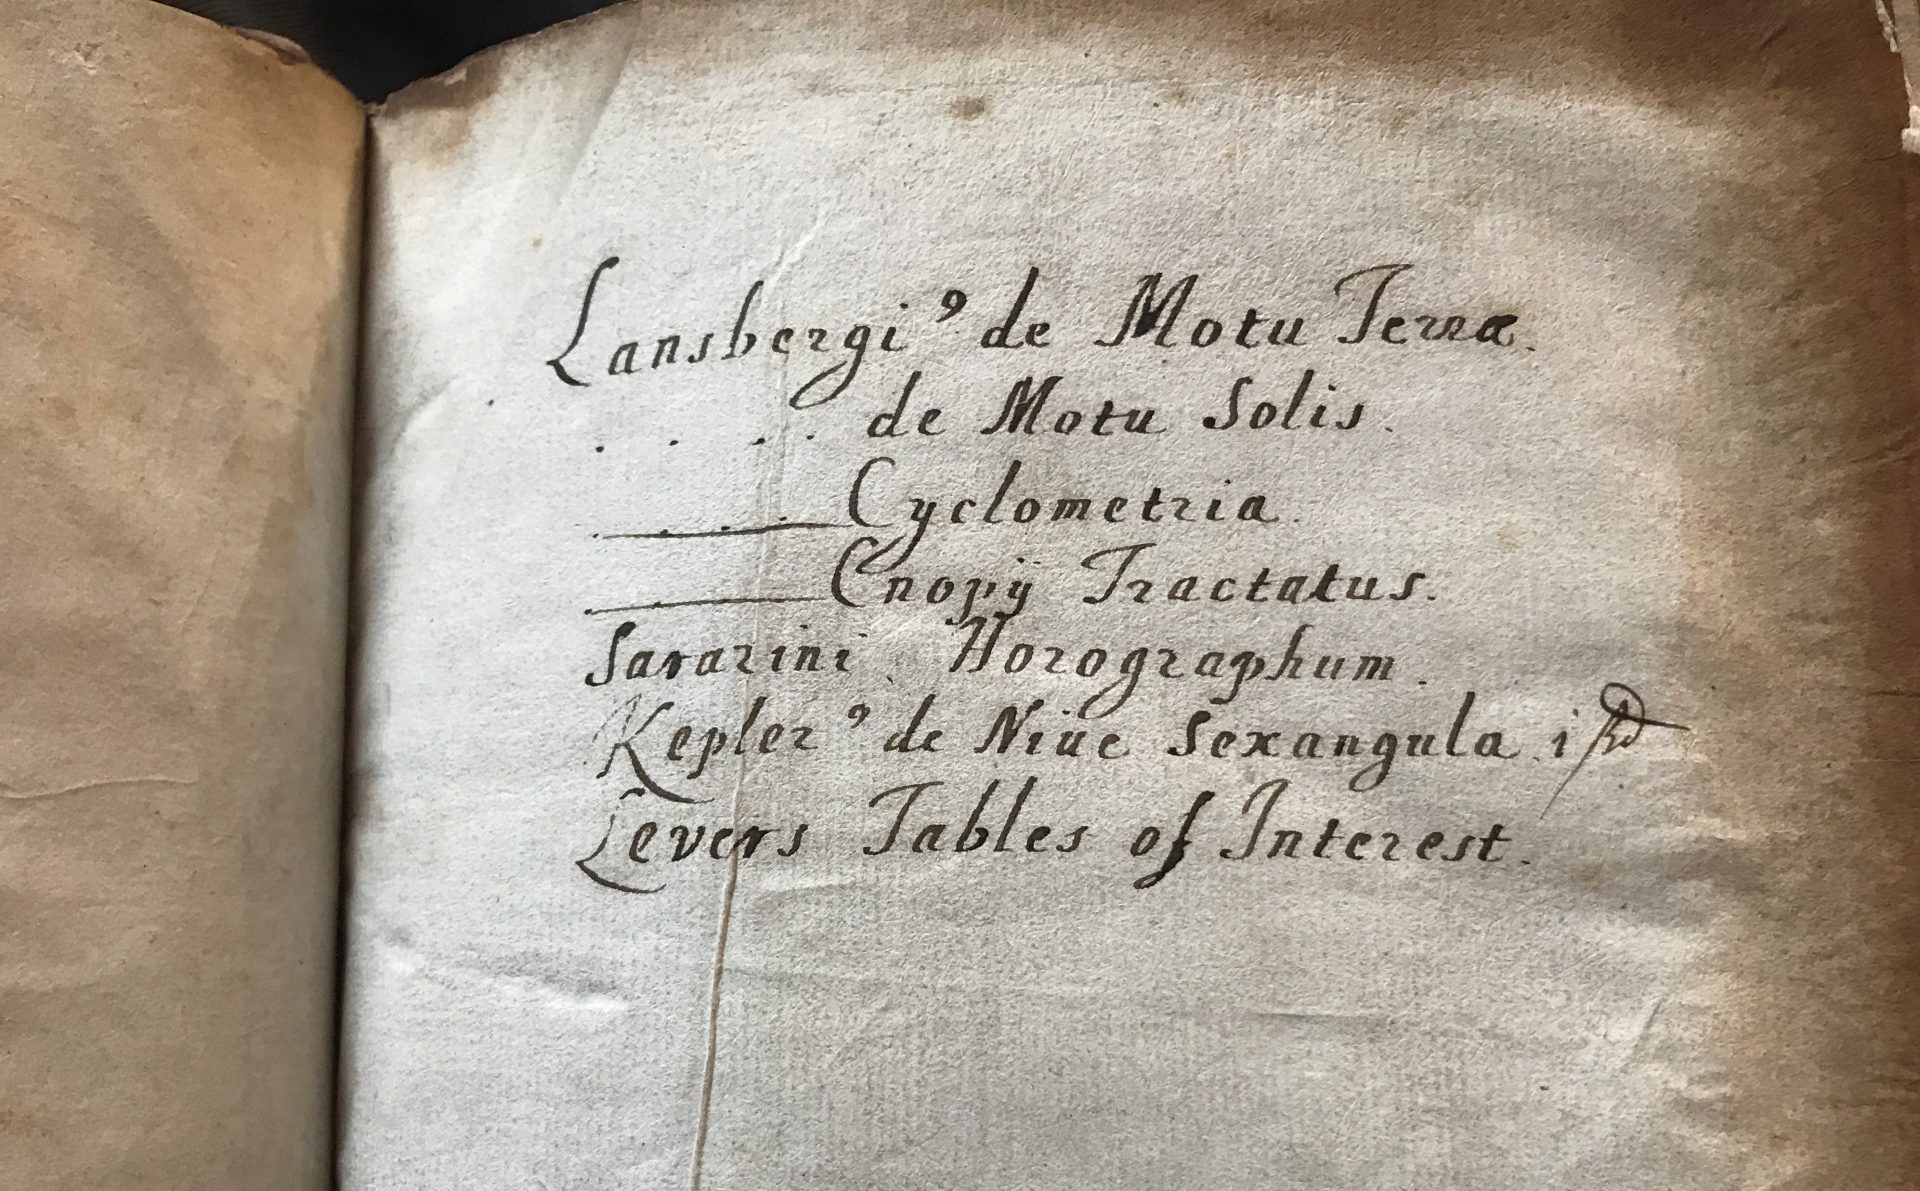 Lansbergi⁹ de Motu Terræ.
. . . . de Motu Solis.
Cyclometria.
Cnopij Tractatus.
Sarazini Horographum.
Kepler⁹ de Niue Sexangula.
Levers Tables of Interest.